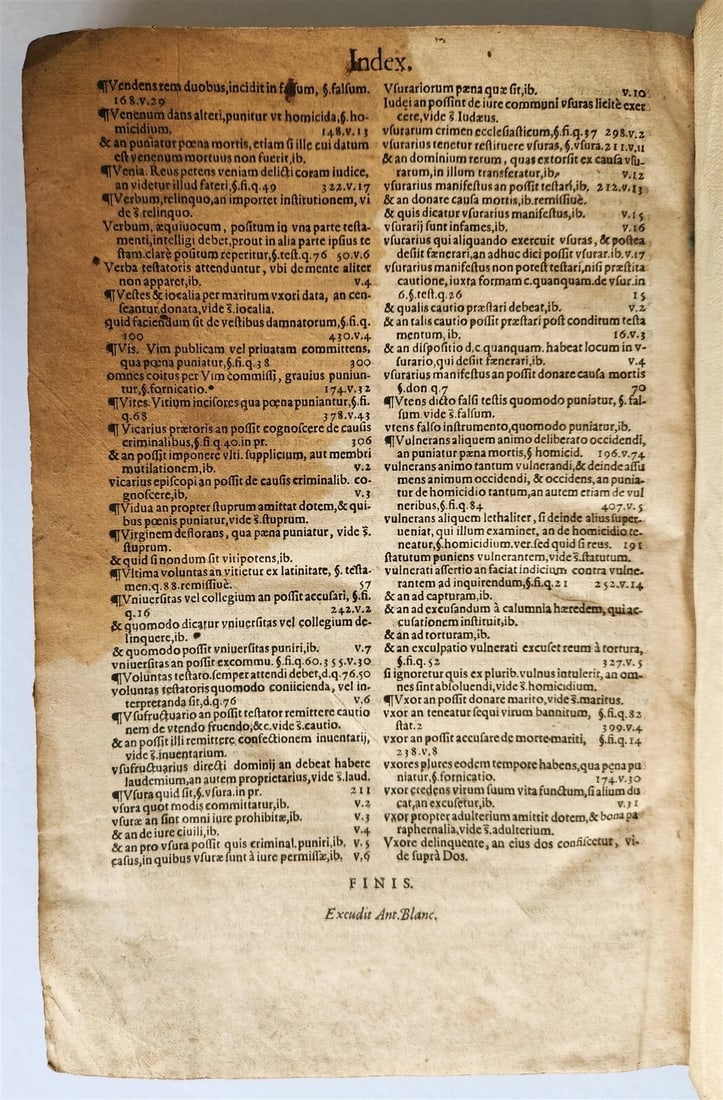 Index.
¶Vendens rem duobus, incidit in falsum, §.falsum.
168.v.29
¶Venenum dans alteri, punitur vt homicida, §. ho-
micidium. 148.v.13
& an puniatur pœna mortis, etiam si ille cui datum
est venenum mortuus non fuerit, ib.
¶Venia. Reus petens veniam delicti coram iudice,
an videtur illud fateri, §.fi.q.49 322.v.17
¶Verbum, relinquo, an importet institutionem, vi
de §.relinquo.
Verbum, æquiuocum, positum in vna parte testa-
menti, intelligi debet, prout in alia parte ipsius te
stam.clarè positum reperitur, §.test.q.76 50.v.6
Verba testatoris attenduntur, vbi de mente aliter
non apparet, ib. v.4
¶Vestes & iocalia per maritum vxori data, an cen-
seantur donata, vide §.iocalia.
quid faciendum sit de vestibus damnatorum, §.fi.q.
100 430.v.4
¶Vis. Vim publicam vel priuatam committens,
qua pœna puniatur, §.fi.q.38 300
omnes coitus per Vim commissi, grauius puniun-
tur, §.fornicatio. 174.v.32
¶Vites. Vitium incisores qua pœna puniantur, §.fi.
q.68 378.v.43
¶Vicarius prætoris an possit cognoscere de causis
criminalibus, §.fi.q.40.in pr. 306
& an possit imponere vlti. supplicium, aut membri
mutilationem, ib. v.2
vicarius episcopi an possit de causis criminalib. co-
gnoscere, ib, v.3
¶Vidua an propter stuprum amittat dotem, & qui-
bus pœnis puniatur, vide §.stuprum.
¶Virginem deflorans, qua pœna puniatur, vide §.
stuprum.
& quid si nondum sit viripotens, ib.
¶Vltima voluntas an vitietur ex latinitate, §. testa-
men.q.88.remissiuè. 57
¶Vniuersitas vel collegium an possit accusari, §.fi.
q.16 242.v.2
& quomodo dicatur vniuersitas vel collegium de-
linquere, ib.
& quomodo possit vniuersitas puniri, ib. v.7
vniuersitas an possit excommu. §.fi.q.60.355.v.30
¶Voluntas testato.semper attendi debet, d.q.76.50
voluntas testatoris quomodo coniicienda, vel in-
terpretanda sit, d.q.76 v.6
¶Vsufructuario an possit testator remittere cautio
nem de vtendo fruendo, &c.vide §.cautio.
& an possit illi remittere confectionem inuentarij,
vide §.inuentarium.
vsufructuarius directi dominij an debeat habere
laudemium, an autem proprietarius, vide §.laud.
¶Vsura quid sit, §.vsura.in pr. 211
vsura quot modis committatur, ib. v.2
vsuræ an sint omni iure prohibitæ, ib. v.3
& an de iure ciuili, ib. v.4
& an pro vsura possit quis criminal.puniri, ib. v.5
casus, in quibus vsuræ sunt à iure permissæ, ib. v.6
Vsurariorum pœna quæ sit, ib. v.10
Iudei an possint de iure communi vsuras licitè exer
cere, vide § Iudæus.
vsurarum crimen ecclesiasticum, §.fi.q.37 298.v.2
vsurarius tenetur restituere vsuras, §.vsura.211.v.11
& an dominium rerum, quas extorsit ex causa vsu-
rarum, in illum transferatur, ib, v.12
vsurarius manifestus an possit testari, ib. 212.v.13
& an donare causa mortis, ib.remissiuè.
& quis dicatur vsurarius manifestus, ib. v.15
vsurarij sunt infames, ib. v.16
vsurarius qui aliquando exercuit vsuras, & postea
desiit fænerari, an adhuc dici possit vsurar.ib.v.17
vsurarius manifestus non potest testari, nisi præstita
cautione, iuxta formam c.quanquam.de vsur.in
6.§.test.q.26 15
& qualis cautio præstari debeat, ib. v.2
& an talis cautio possit præstari post conditum testa
mentum, ib. 16.v.3
& an dispositio d.c.quanquam. habeat locum in v-
surario, qui desiit fænerari, ib. v.4
vsurarius manifestus an possit donare causa mortis
§.don q.7 70
¶Vtens dicto falsi testis quomodo puniatur, §. fal-
sum. vide §.falsum.
vtens falso instrumento, quomodo puniatur, ib.
¶Vulnerans aliquem animo deliberato occidendi,
an puniatur pœna mortis, § homicid. 196.v.74
vulnerans animo tantum vulnerandi, & deinde assu
mens animum occidendi, & occidens, an punia-
tur de homicidio tantum, an autem etiam de vul
neribus, §.fi.q.84 407.v.5
vulnerans aliquem lethaliter, si deinde alius super-
ueniat, qui illum examinet, an de homicidio te-
neatur, §.homicidium.ver.sed quid si reus. 191
statutum puniens vulnerantem, vide §.statutum.
vulnerati assertio an faciat indicium contra vulne-
rantem ad inquirendum, §.fi.q.21 252.v.14
& an ad capturam, ib.
& an ad excusandum à calumnia hæredem, qui ac-
cusationem instituit, ib.
& an ad torturam, ib.
& an exculpatio vulnerati excuset reum à tortura,
§.fi.q.52 327.v.5
si ignoretur quis ex plurib.vulnus intulerit, an om-
nes sint absoluendi, vide §.homicidium.
¶Vxor an possit donare marito, vide §.maritus.
vxor an teneatur sequi virum bannitum, §.fi.q.82
stat.2 399.v.4
vxor an possit accusare de morte mariti, §.fi.q.14
238.v.8
vxores plures eodem tempore habens, qua pena pu
niatur, §.fornicatio. 174.v.30
vxor credens virum suum vita functum, si alium du
cat, an excusetur, ib. v.31
vxor propter adulterium amittit dotem, & bona pa
raphernalia, vide §.adulterium.
Vxore delinquente, an eius dos confiscetur, vi-
de suprà Dos.
FINIS.
Excudit Ant. Blanc.